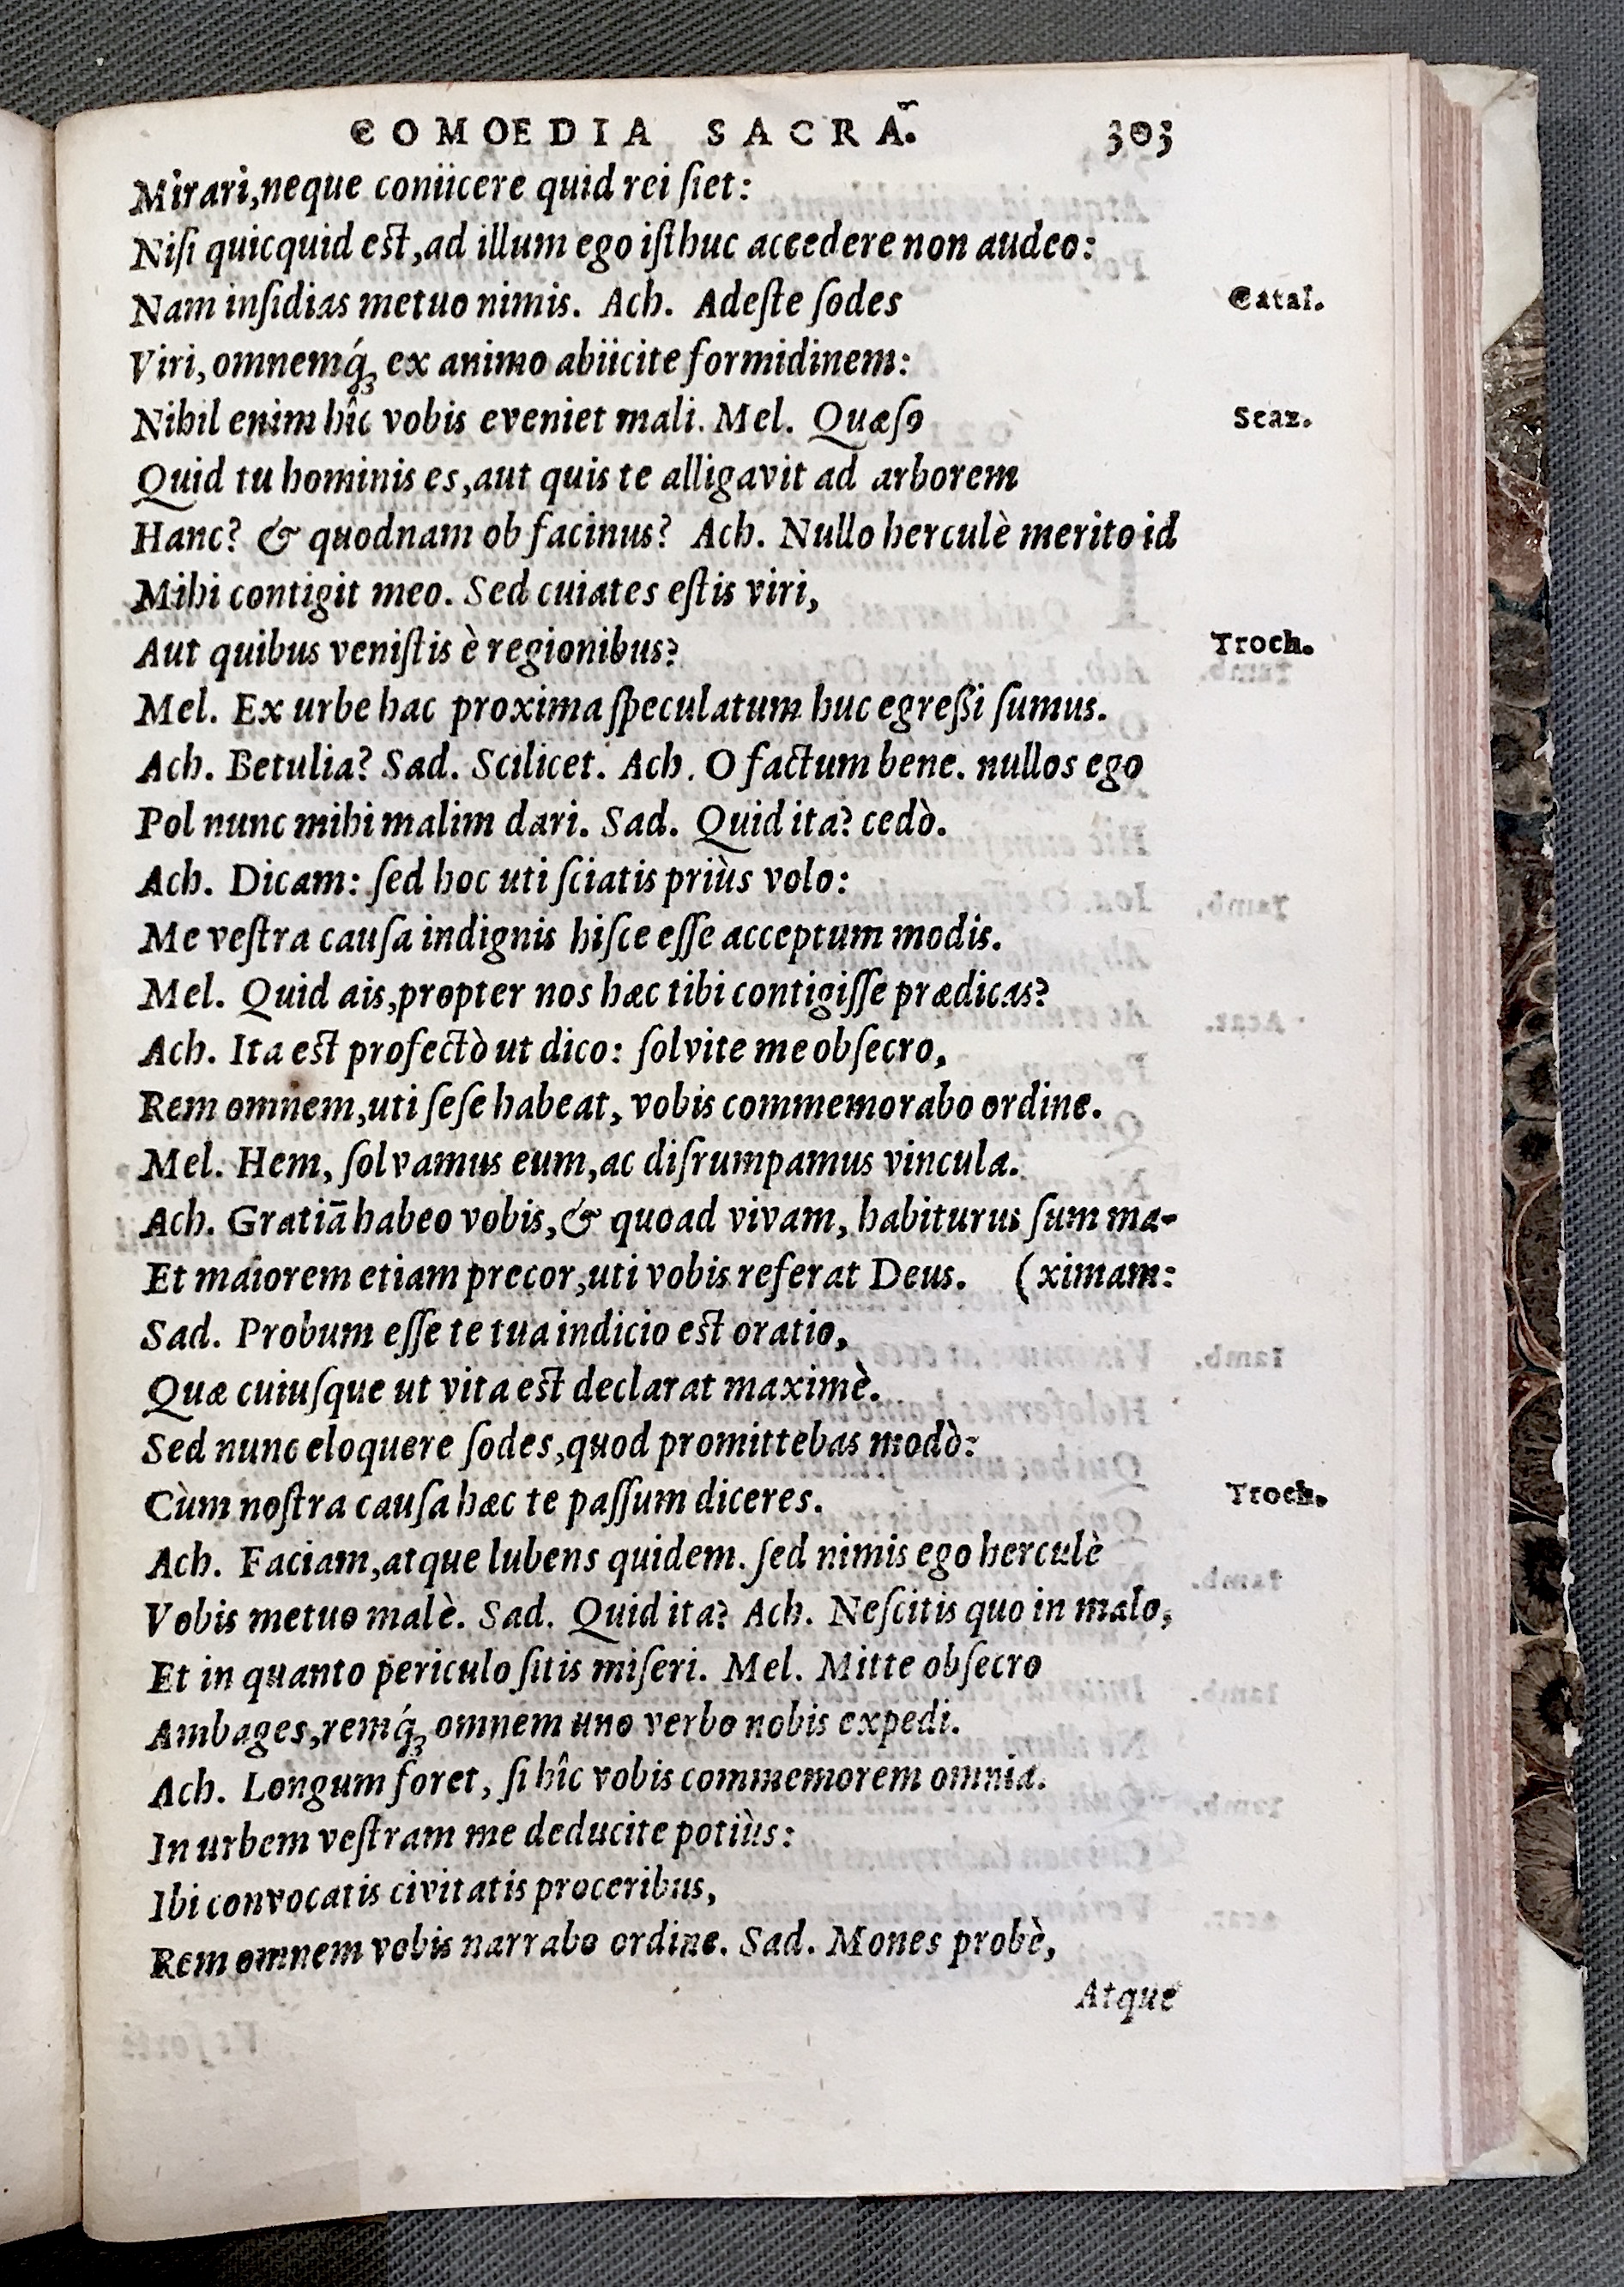 COMOEDIA SACRA. 303
Mirari,neque coniicere quid rei ſiet:
Niſi quicquid eſt,ad illum ego iſthuc accedere non audeo:
Nam inſidias metuo nimis. Ach. Adeſte ſodes Catal.
Viri,omnemq́ꝫ ex animo abiicite formidinem:
Nihil enim hîc vobis eveniet mali. Mel. Quæſo Scaz.
Quid tu hominis es,aut quis te alligavit ad arborem
Hanc? & quodnam ob facinus? Ach. Nullo herculè merito id
Mihi contigit meo. Sed cuiates eſtis viri,
Aut quibus veniſtis è regionibus? Troch.
Mel. Ex urbe hac proxima ſpeculatum huc egreßi ſumus.
Ach. Betulia? Sad. Scilicet. Ach. O factum bene. nullos ego
Pol nunc mihi malim dari. Sad. Quid ita? cedò.
Ach. Dicam: ſed hoc uti ſciatis priùs volo:
Me veſtra cauſa indignis hiſce eſſe acceptum modis.
Mel. Quid ais,propter nos hæc tibi contigiſſe prædicas?
Ach. Ita eſt profectò ut dico: ſolvite me obſecro,
Rem omnem,uti ſeſe habeat, vobis commemorabo ordine.
Mel. Hem, ſolvamus eum,ac diſrumpamus vincula.
Ach. Gratiā habeo vobis,& quoad vivam, habiturus ſum ma-
Et maiorem etiam precor,uti vobis referat Deus. (ximam:
Sad. Probum eſſe te tua indicio eſt oratio,
Quæ cuiuſque ut vita eſt declarat maximè.
Sed nunc eloquere ſodes,quod promittebas modò:
Cùm noſtra cauſa hæc te paſſum diceres. Troch.
Ach. Faciam,atque lubens quidem. ſed nimis ego herculè
Vobis metuo malè. Sad. Quid ita? Ach. Neſcitis quo in malo,
Et in quanto periculo ſitis miſeri. Mel. Mitte obſecro
Ambages,remq́ꝫ omnem uno verbo nobis expedi.
Ach. Longum foret, ſi hîc vobis commemorem omnia.
In urbem veſtram me deducite potiùs:
Ibi convocatis civitatis proceribus,
Rem omnem vobis narrabo ordine. Sad. Mones probè,
Atque